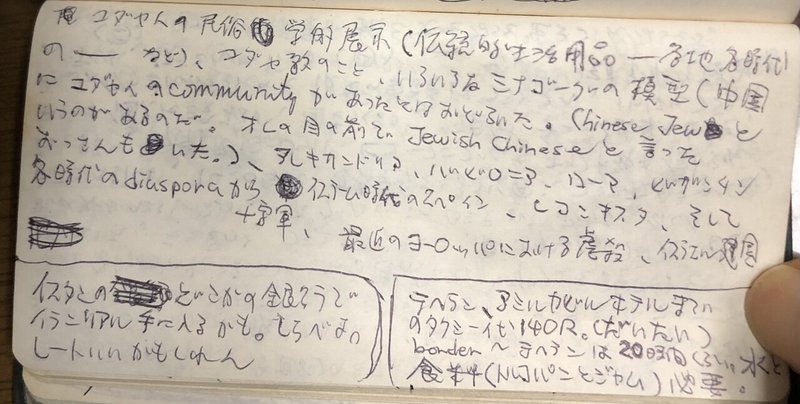 ユダヤ人の民俗学的展示(伝統的生活用品—各地各時代
の— など)、ユダヤ教のこと、いろいろなシナゴーグの模型(中国
にユダヤ人のcommunityがあったとはおどろいた。Chinese Jewと
いうのがあるのだ。オレの目の前でJewish Chineseと言った
おっさんもいた。)、アレキサンドリア、バビロニア、ローマ、ビザンチン
各時代のdiasporaから イスラム時代のスペイン、レコンキスタ、そして
十字軍、最近のヨーロッパにおける虐殺、イスラエル
イスタンの どこかの銀行らで
イラン リアル 手に入るかも。しらべよう
レートいいかもしれん
テヘラン、アミルカビルホテルまで
のタクシー代140R。(だいたい)
border〜テヘランは20時間くらい、水と
食料(パンとジャム)必要。